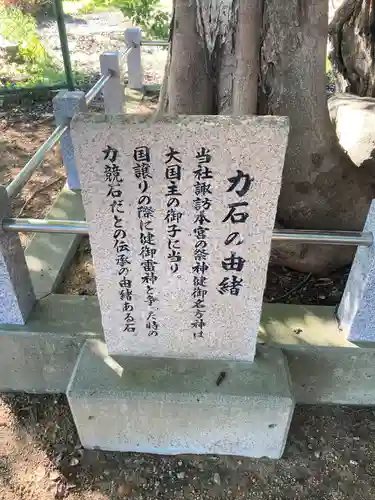 力石の由緒
当社諏訪本宮の祭神健御名方神は
大国主の御子に当り。
国譲りの際に健御雷神と争った時の
力競石だとの伝承の由緒ある石